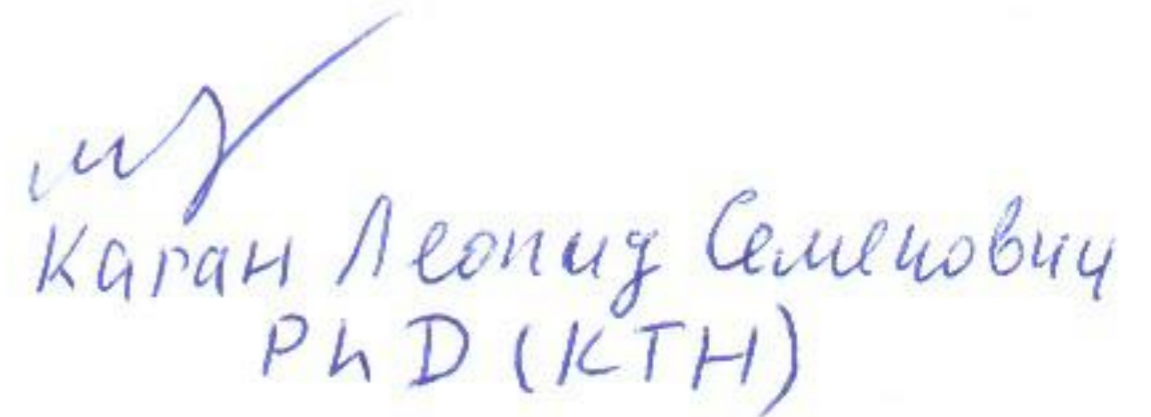 Каган Леонид Семенович
PhD (КТН)